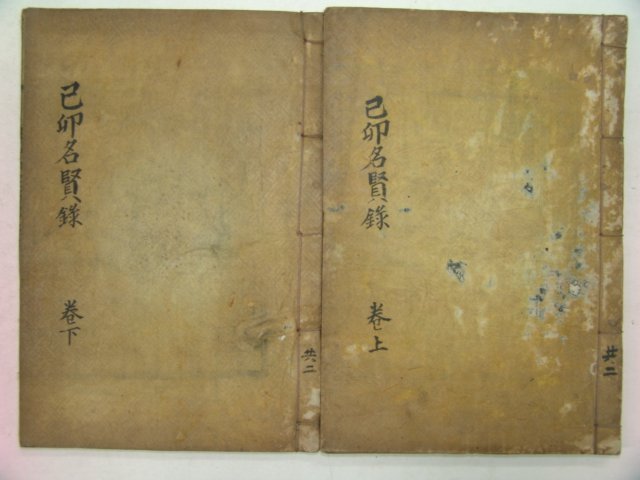 己卯名賢錄
卷上
共二
己卯名賢錄
卷下
共二